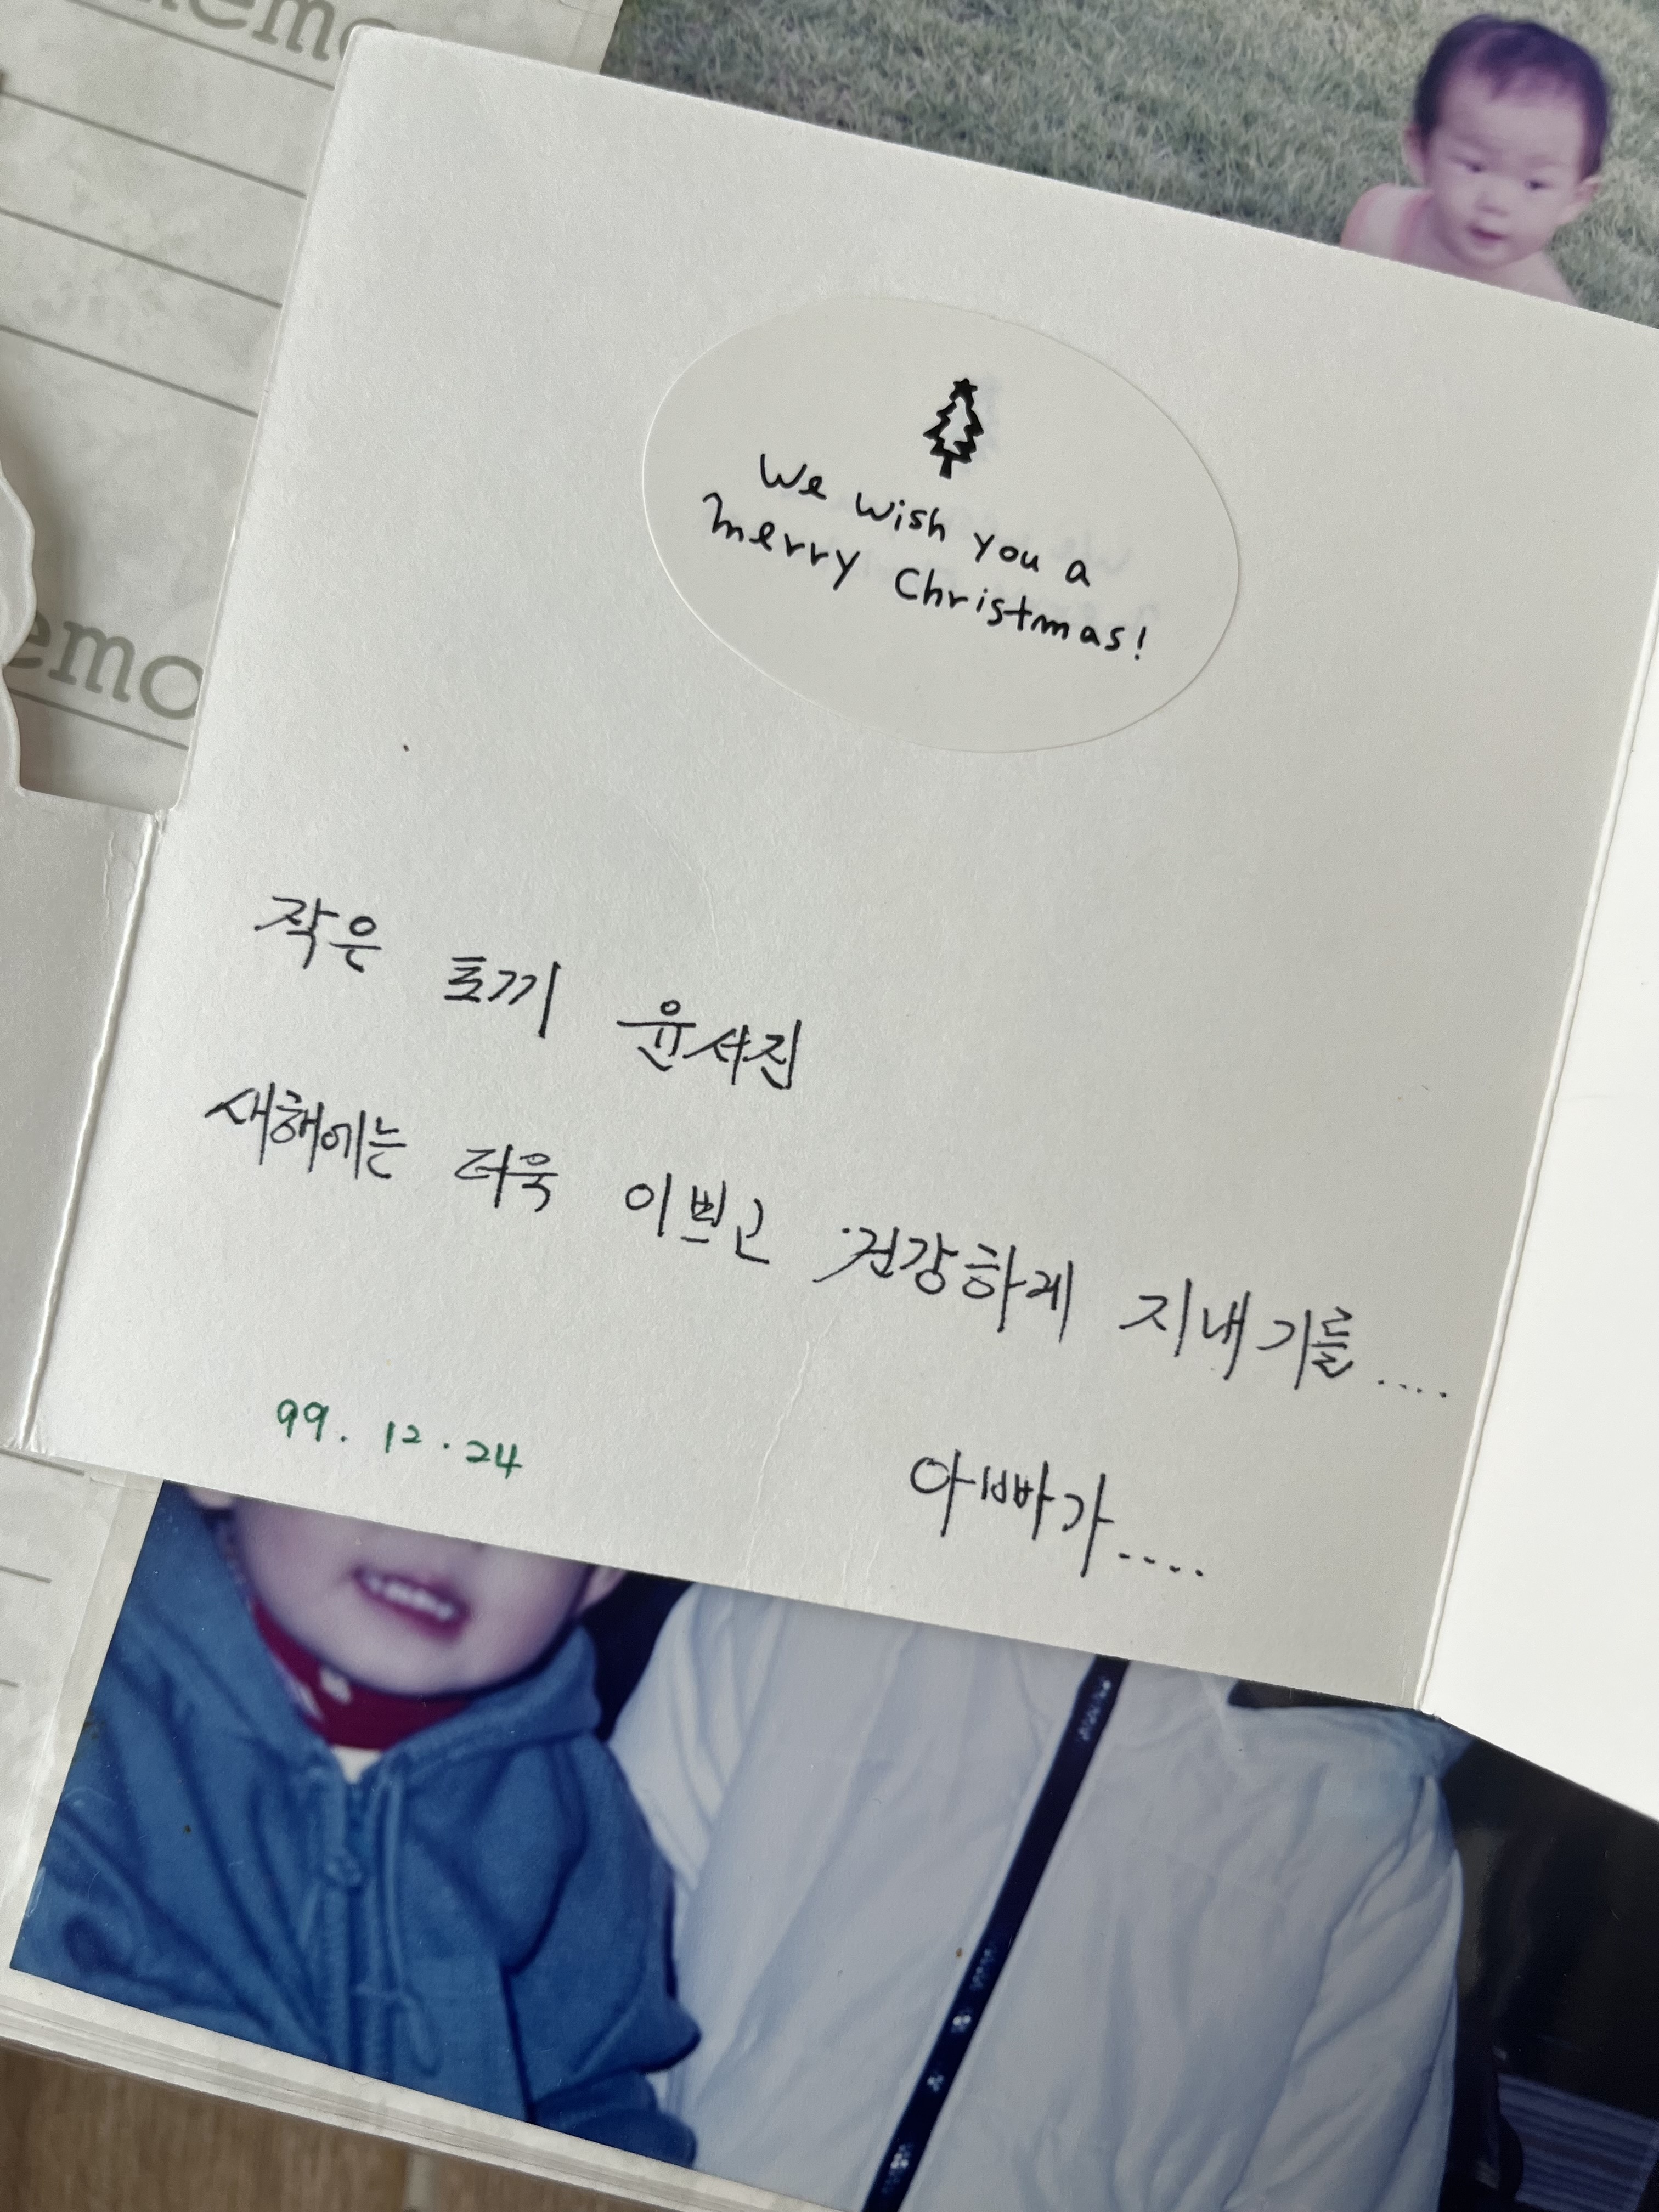 emo
We wish you a
merry Christmas!
emo
작은 토끼 윤서진
새해에는 더욱 이쁘고 건강하게 지내기를....
99. 12. 24
아빠가....